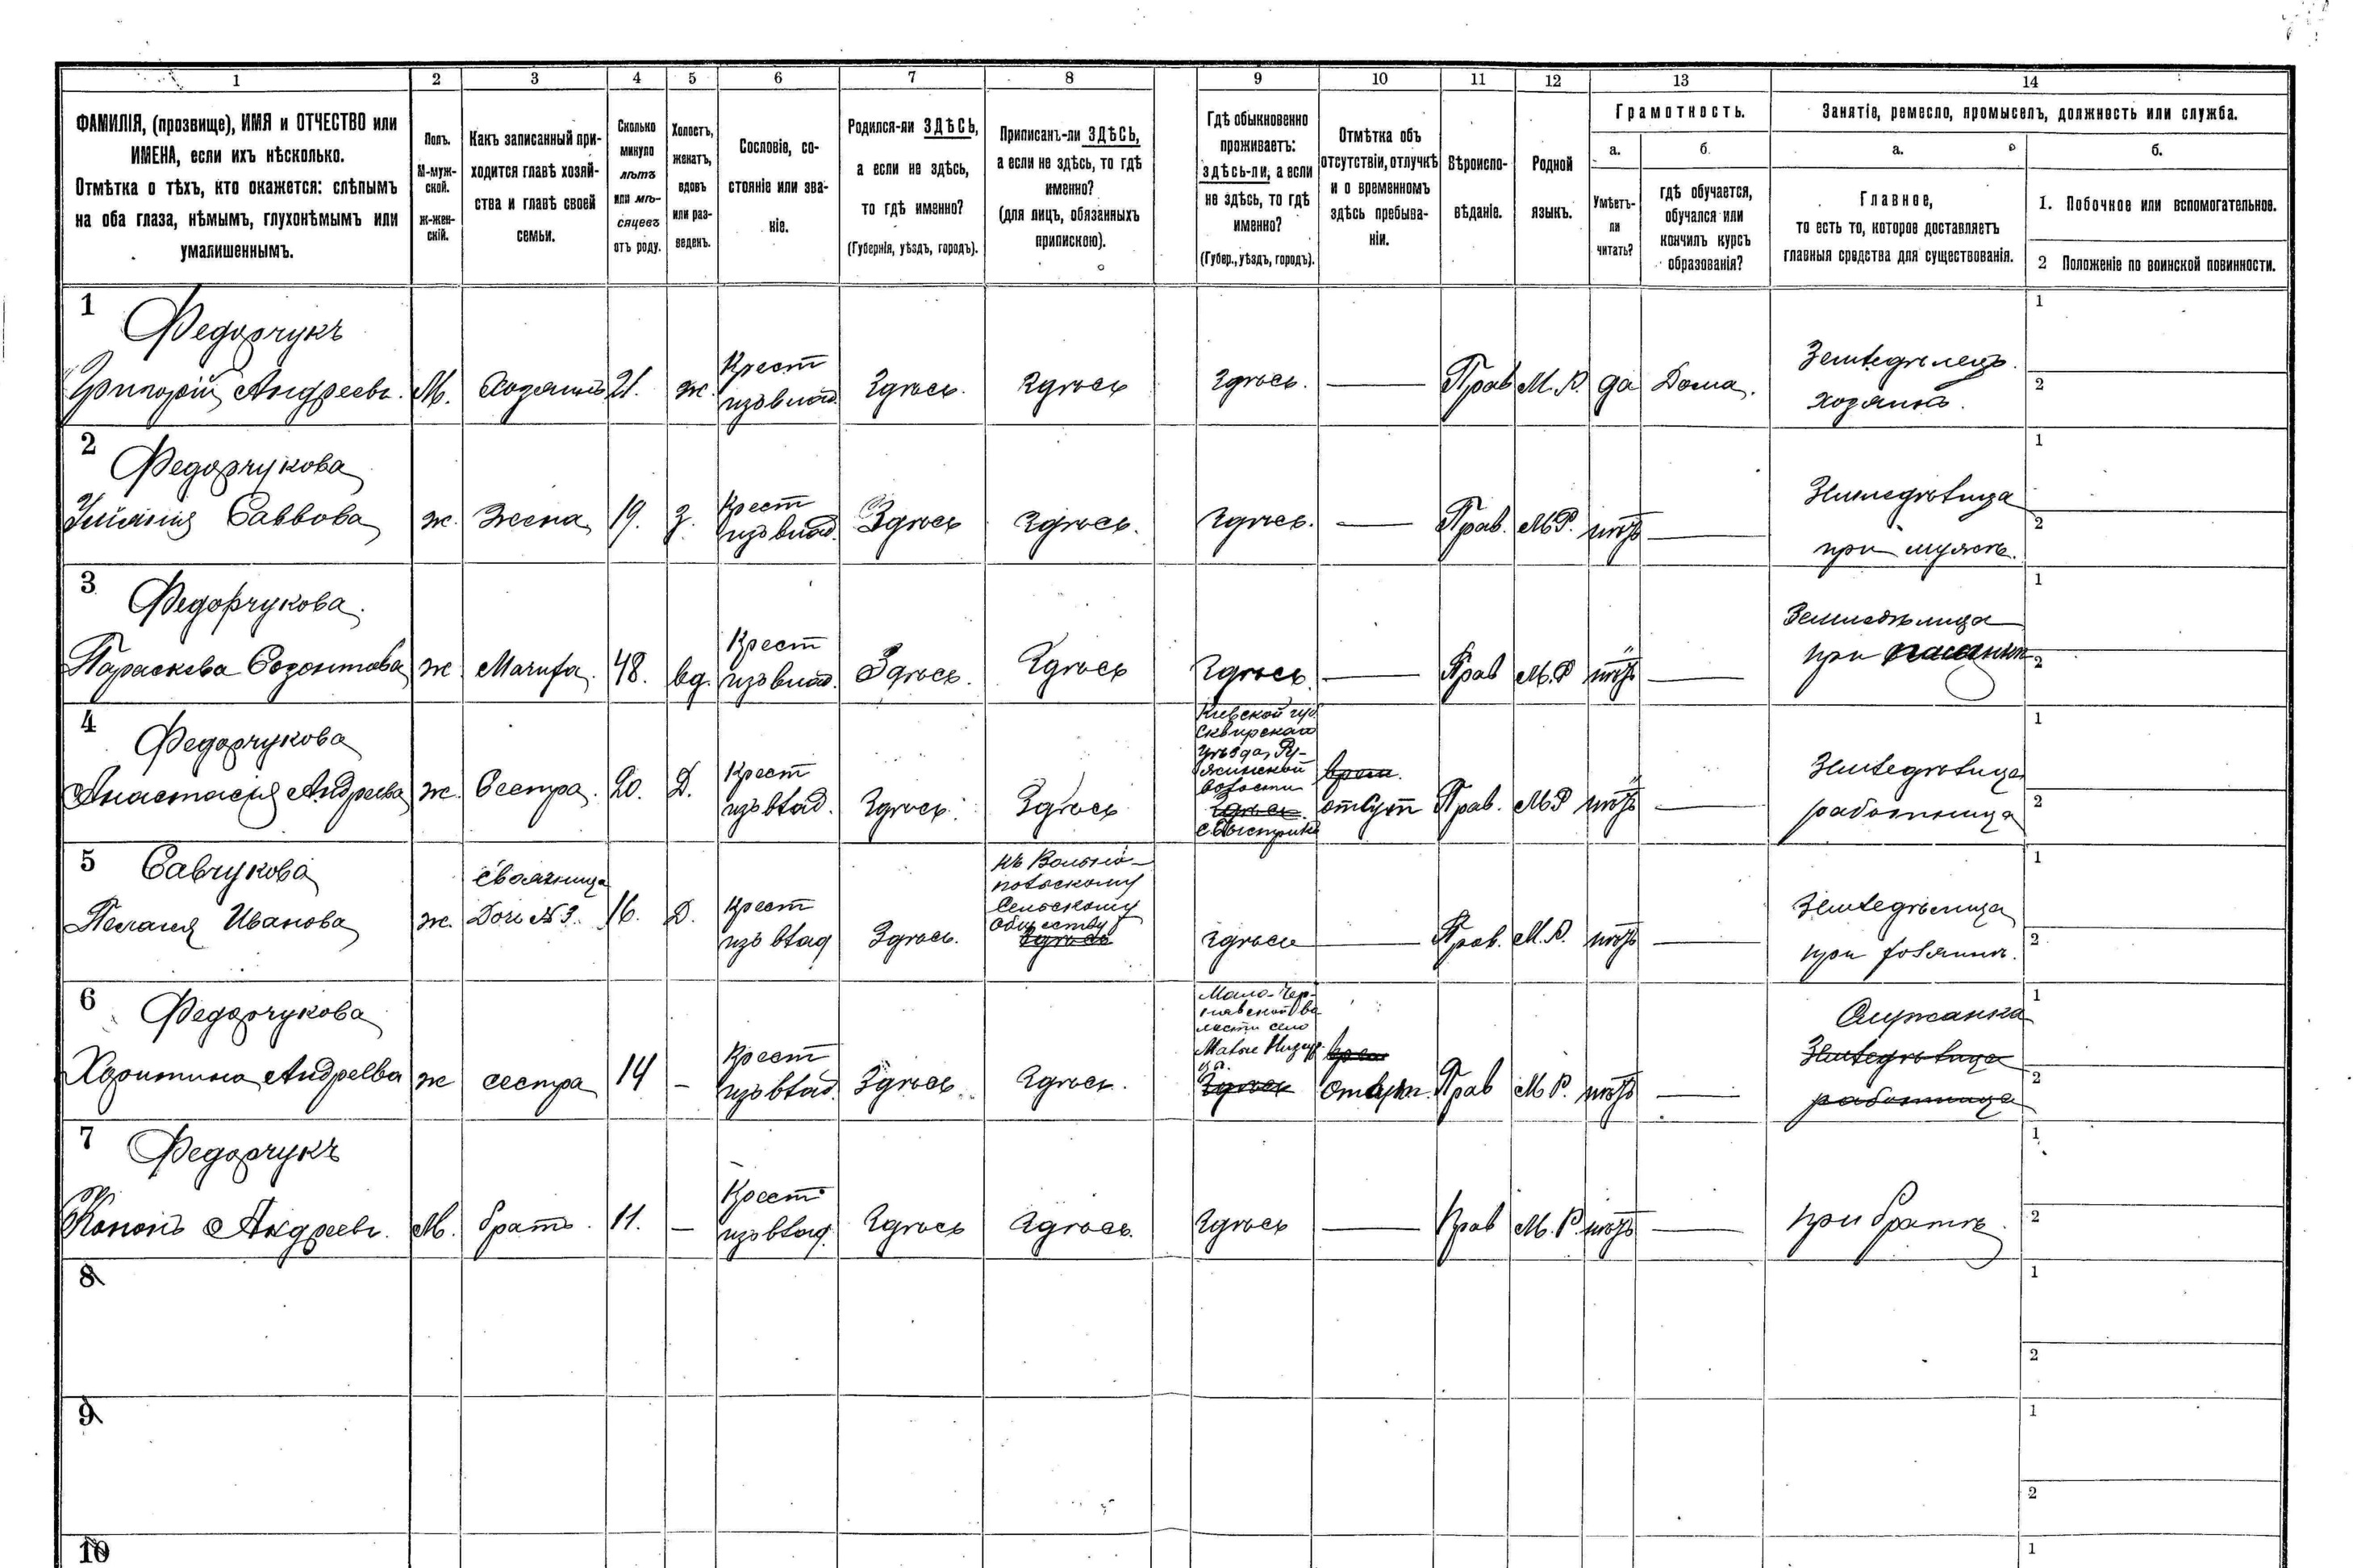 1 2 3 4 5 6 7 8 9 10 11 12 13 14
ФАМИЛІЯ, (прозвище), ИМЯ и ОТЧЕСТВО или
ИМЕНА, если ихъ нѣсколько.
Отмѣтка о тѣхъ, кто окажется: слѣпымъ
на оба глаза, нѣмымъ, глухонѣмымъ или
умалишеннымъ.
Полъ.
М-муж-
ской.
ж-жен-
скій.
Какъ записанный при-
ходится главѣ хозяй-
ства и главѣ своей
семьи.
Сколько
минуло
лѣтъ
или мѣ-
сяцевъ
отъ роду.
Холостъ,
женатъ,
вдовъ
или раз-
веденъ.
Сословіе, со-
стояніе или зва-
ніе.
Родился-ли ЗДѢСЬ,
а если не здѣсь,
то гдѣ именно?
(Губернія, уѣздъ, городъ).
Приписанъ-ли ЗДѢСЬ,
а если не здѣсь, то гдѣ
именно?
(для лицъ, обязанныхъ
припискою).
Гдѣ обыкновенно
проживаетъ:
здѣсь-ли, а если
не здѣсь, то гдѣ
именно?
(Губер., уѣздъ, городъ).
Отмѣтка объ
отсутствіи, отлучкѣ
и о временномъ
здѣсь пребыва-
ніи.
Вѣроиспо-
вѣданіе.
Родной
языкъ.
Грамотность.
а.
Умѣетъ-
ли
читать?
б.
гдѣ обучается,
обучался или
кончилъ курсъ
образованія?
Занятіе, ремесло, промыселъ, должность или служба.
а.
Главное,
то есть то, которое доставляетъ
главныя средства для существованія.
б.
1. Побочное или вспомогательное.
2 Положеніе по воинской повинности.
1
Федорчукъ
Григорій Андреевъ.
М.
Хозяинъ
21.
ж.
Крест
изъ влад.
Здѣсь.
Здѣсь
Здѣсь.
Прав
М. Р.
да
Дома.
Земледѣлецъ.
хозяинъ.
1
2
2
Федорчукова
Саввова
ж.
Жена
19.
З.
Крест
изъ влад.
Здѣсь
Здѣсь.
Здѣсь.
Прав.
М.Р.
нѣтъ
Земледѣлица
при мужѣ.
1
2
3
Федорчукова.
Параскева Созонтова
ж
Мать
48.
вд.
Крест
изъ влад.
Здѣсь.
Здѣсь
Здѣсь.
Прав
М.Р
нѣтъ
Земледѣлица
при
1
2
4
Федорчукова
Анастасія Андреева
ж.
Сестра.
20.
Д.
Крест
изъ влад.
Здѣсь.
Здѣсь
Кіевской губ.
Сквирскаго
уѣзда, Ру-
жинской
волости
Здѣсь.
с. Быстрикѣ
врем.
отсут
Прав.
М.Р
нѣтъ
Земледѣлица
работница
1
2
5
Савчукова
Пелагея Иванова
ж.
свояченица
Дочь №3.
16.
Д.
Крест
изъ влад
Здѣсь.
сельскому
обществу
Здѣсь
Здѣсь
Прав.
М. Р.
нѣтъ
Земледѣлица
при хозяинѣ.
1
2
6
Федорчукова
Харитина Андреева
ж
сестра
14
–
Крест
изъ влад.
Здѣсь.
Здѣсь.
Мало-Чер-
нявской во
лости село
Малые Низгур-
ца.
Здѣсь
врем
отсут.
Прав
М Р.
нѣтъ
Служанка
Земледѣлица
работница
1
2
7
Федорчукъ
Кононъ Андреевъ.
М.
братъ.
11.
–
Крест
изъ влад.
Здѣсь
Здѣсь.
Здѣсь
Прав
М. Р.
нѣтъ
при братѣ.
1
2
8
1
2
9
1
2
10
1